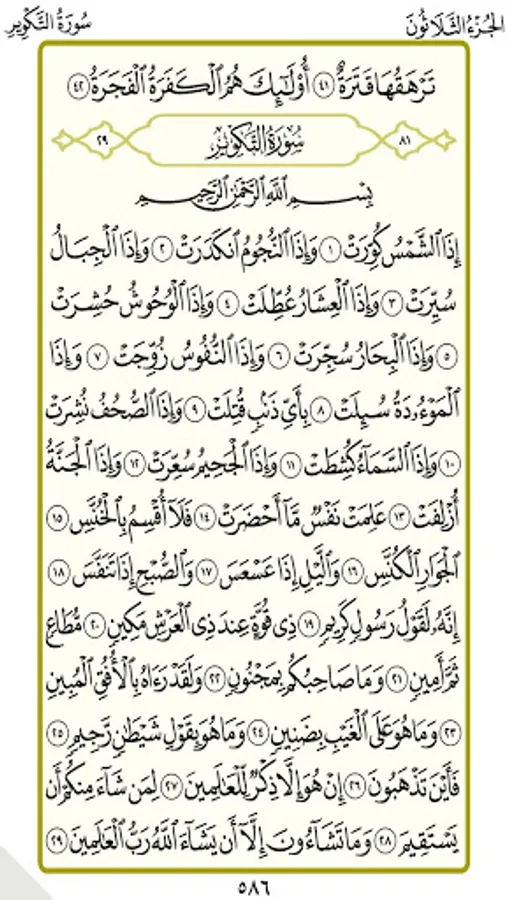 سُورَةُ التَّكْوِيرِ الجُزْءُ الثَّلَاثُونَ
تَرْهَقُهَا قَتَرَةٌ ٤١ أُوْلَٰٓئِكَ هُمُ ٱلْكَفَرَةُ ٱلْفَجَرَةُ ٤٢
٢٩ سُورَةُ التَّكْوِيرِ ٨١
بِسْمِ ٱللَّهِ ٱلرَّحْمَٰنِ ٱلرَّحِيمِ
إِذَا ٱلشَّمْسُ كُوِّرَتْ ١ وَإِذَا ٱلنُّجُومُ ٱنكَدَرَتْ ٢ وَإِذَا ٱلْجِبَالُ
سُيِّرَتْ ٣ وَإِذَا ٱلْعِشَارُ عُطِّلَتْ ٤ وَإِذَا ٱلْوُحُوشُ حُشِرَتْ
٥ وَإِذَا ٱلْبِحَارُ سُجِّرَتْ ٦ وَإِذَا ٱلنُّفُوسُ زُوِّجَتْ ٧ وَإِذَا
ٱلْمَوْءُۥدَةُ سُئِلَتْ ٨ بِأَيِّ ذَنۢبٍ قُتِلَتْ ٩ وَإِذَا ٱلصُّحُفُ نُشِرَتْ
١٠ وَإِذَا ٱلسَّمَآءُ كُشِطَتْ ١١ وَإِذَا ٱلْجَحِيمُ سُعِّرَتْ ١٢ وَإِذَا ٱلْجَنَّةُ
أُزْلِفَتْ ١٣ عَلِمَتْ نَفْسٌ مَّآ أَحْضَرَتْ ١٤ فَلَآ أُقْسِمُ بِٱلْخُنَّسِ ١٥
ٱلْجَوَارِ ٱلْكُنَّسِ ١٦ وَٱلَّيْلِ إِذَا عَسْعَسَ ١٧ وَٱلصُّبْحِ إِذَا تَنَفَّسَ ١٨
إِنَّهُۥ لَقَوْلُ رَسُولٍ كَرِيمٍ ١٩ ذِي قُوَّةٍ عِندَ ذِي ٱلْعَرْشِ مَكِينٍ ٢٠ مُّطَاعٍ
ثَمَّ أَمِينٍ ٢١ وَمَا صَاحِبُكُم بِمَجْنُونٍ ٢٢ وَلَقَدْ رَءَاهُ بِٱلْأُفُقِ ٱلْمُبِينِ
٢٣ وَمَا هُوَ عَلَى ٱلْغَيْبِ بِضَنِينٍ ٢٤ وَمَا هُوَ بِقَوْلِ شَيْطَٰنٍ رَّجِيمٍ ٢٥
فَأَيْنَ تَذْهَبُونَ ٢٦ إِنْ هُوَ إِلَّا ذِكْرٌ لِّلْعَٰلَمِينَ ٢٧ لِمَن شَآءَ مِنكُمْ أَن
يَسْتَقِيمَ ٢٨ وَمَا تَشَآءُونَ إِلَّآ أَن يَشَآءَ ٱللَّهُ رَبُّ ٱلْعَٰلَمِينَ ٢٩
٥٨٦